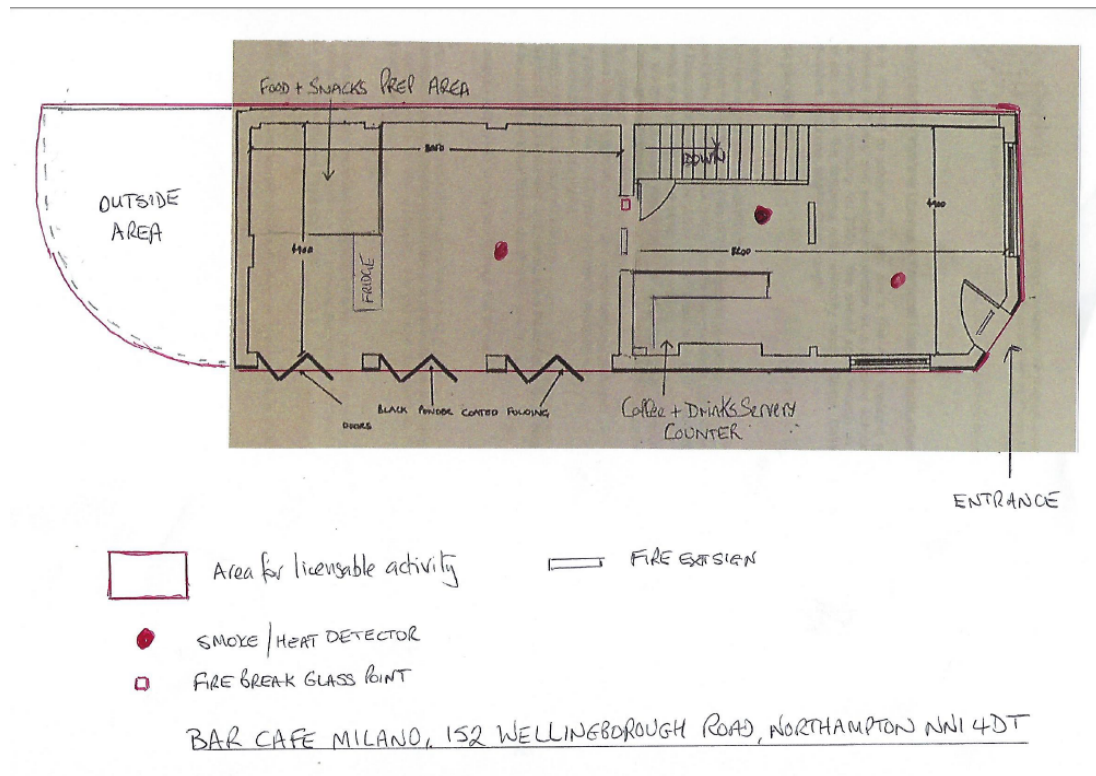 FOOD + SNACKS PREP AREA
OUTSIDE
AREA
DOWN
4900
8200
4900
FRIDGE
BLACK POWDER COATED FOLDING
DOORS
Coffee + Drinks Servery
COUNTER
ENTRANCE
Area for licensable activity
FIRE EXIT SIGN
SMOKE/HEAT DETECTOR
FIRE BREAK GLASS POINT
BAR CAFE MILANO, 152 WELLINGBOROUGH ROAD, NORTHAMPTON NN1 4DT